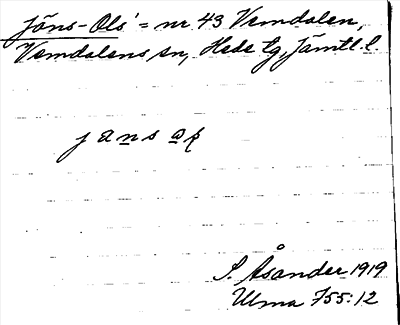 Jöns-Ols' = nr 43 Vemdalen,
Vemdalens sn, Hede tg, Jämtl. l.
j a n s
S. Åsander 1919
Ulma 755:12